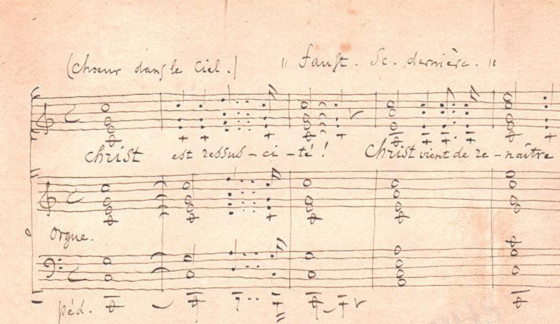 (Chœur dans le Ciel.) " Faust. Sc. dernière. "
Christ est ressus-ci-té! Christ vient de re-naître
Orgue.
péd.